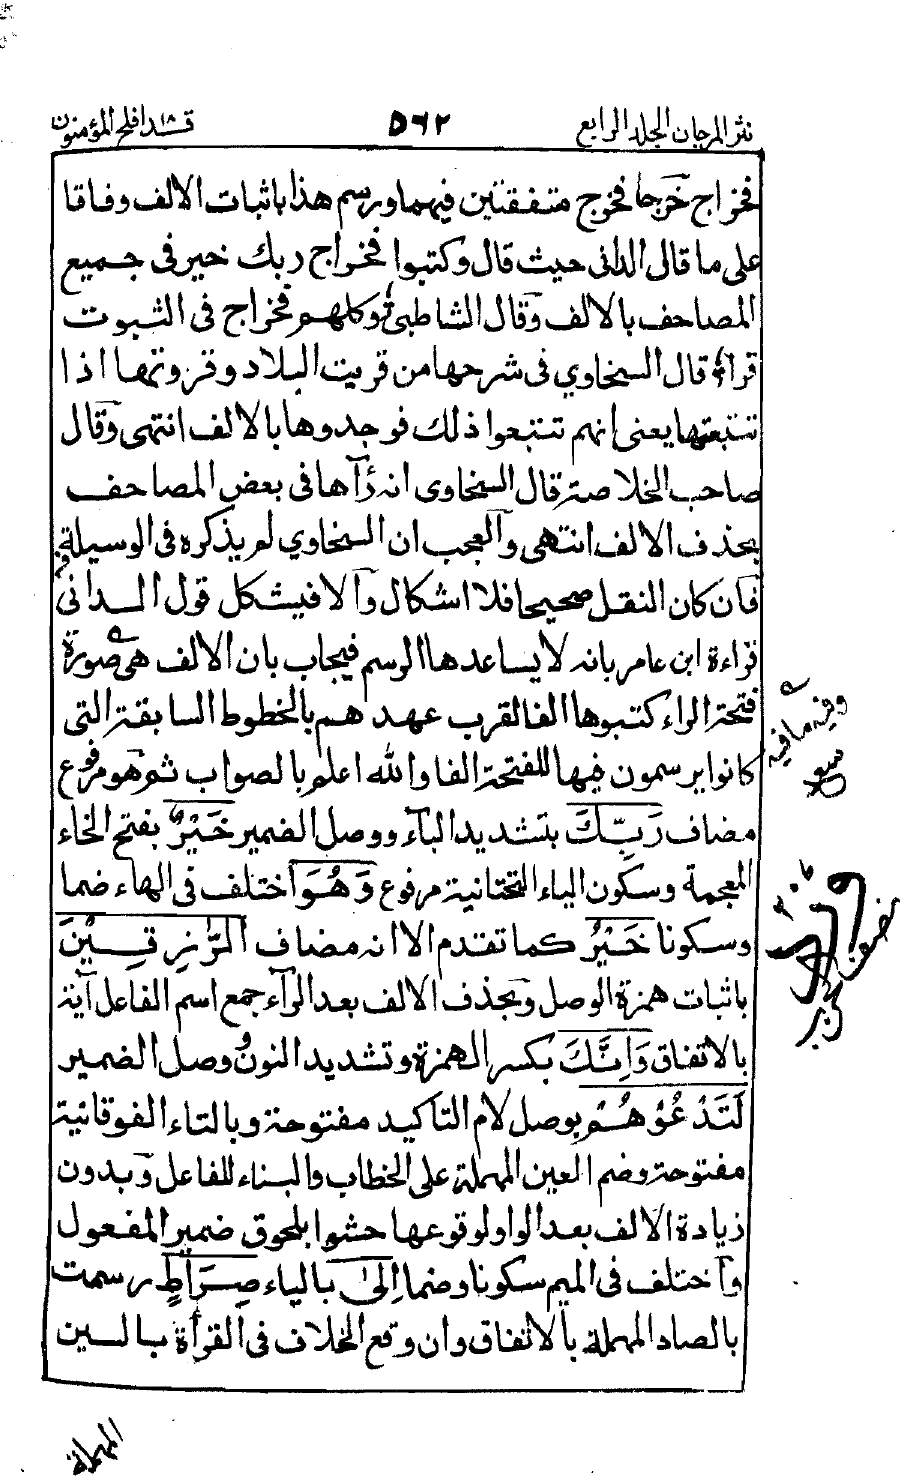 نثر المرجان الجلد الرابع ٥٦٢ قد افلح ١٨ المؤمنون
فخراج خرجا فخرج متفقتين فيهما ورسم هذا باثبات الالف وفاقا
على ما قال الدانى حيث قال وكتبوا فخراج ربك خير فى جميع
المصاحف بالالف وقال الشاطبى وكلهم فخراج فى الثبوت
قرا قال السخاوي فى شرحها من قريت البلاد وقروتها اذا
تتبعتها يعنى انهم تتبعوا ذلك فوجدوها بالالف انتهى وقال
صاحب الخلاصة قال السخاوى انه رآها فى بعض المصاحف
بحذف الالف انتهى والعجب ان السخاوي لم يذكره فى الوسيلة
فان كان النقل صحيحا فلا اشكال والا فيشكل قول الدانى فى
قراءة ابن عامر بانه لا يساعدها الرسم فيجاب بان الالف هى صورة
فتحة الراء كتبوها الفا لقرب عهدهم بالخطوط السابقة التى
كانوا يرسمون فيها للفتحة الفا والله اعلم بالصواب ثم هو مرفوع
مضاف رَبِّكَ بتشديد الباء ووصل الضمير خَيْرٌ بفتح الخاء
المعجمة وسكون الياء التحتانية مرفوع وَهُوَ اختلف فى الهاء ضما
وسكونا خَيْرُ كما تقدم الا انه مضاف الرَّازِقِيْنَ
باثبات همزة الوصل وبحذف الالف بعد الراء جمع اسم الفاعل آية
بالاتفاق وَاِنَّكَ بكسر الهمزة وتشديد النون ووصل الضمير
لَتَدْعُوْهُمْ بوصل لام التاكيد مفتوحة وبالتاء الفوقانية
مفتوحة وضم العين المهملة على الخطاب والبناء للفاعل وبدون
زيادة الالف بعد الواو لوقوعها حشوا بلحوق ضمير المفعول
واختلف فى الميم سكونا وضما اِلىٰ بالياء صِرَاطٍ رسمت
بالصاد المهملة بالاتفاق وان وقع الخلاف فى القرأة بالسين
وفيه ما فيه
المهملة